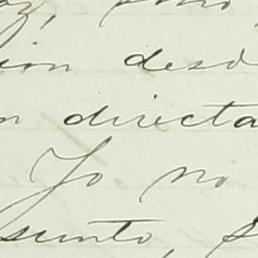 ion desd
n directa
Yo no
sunto, s